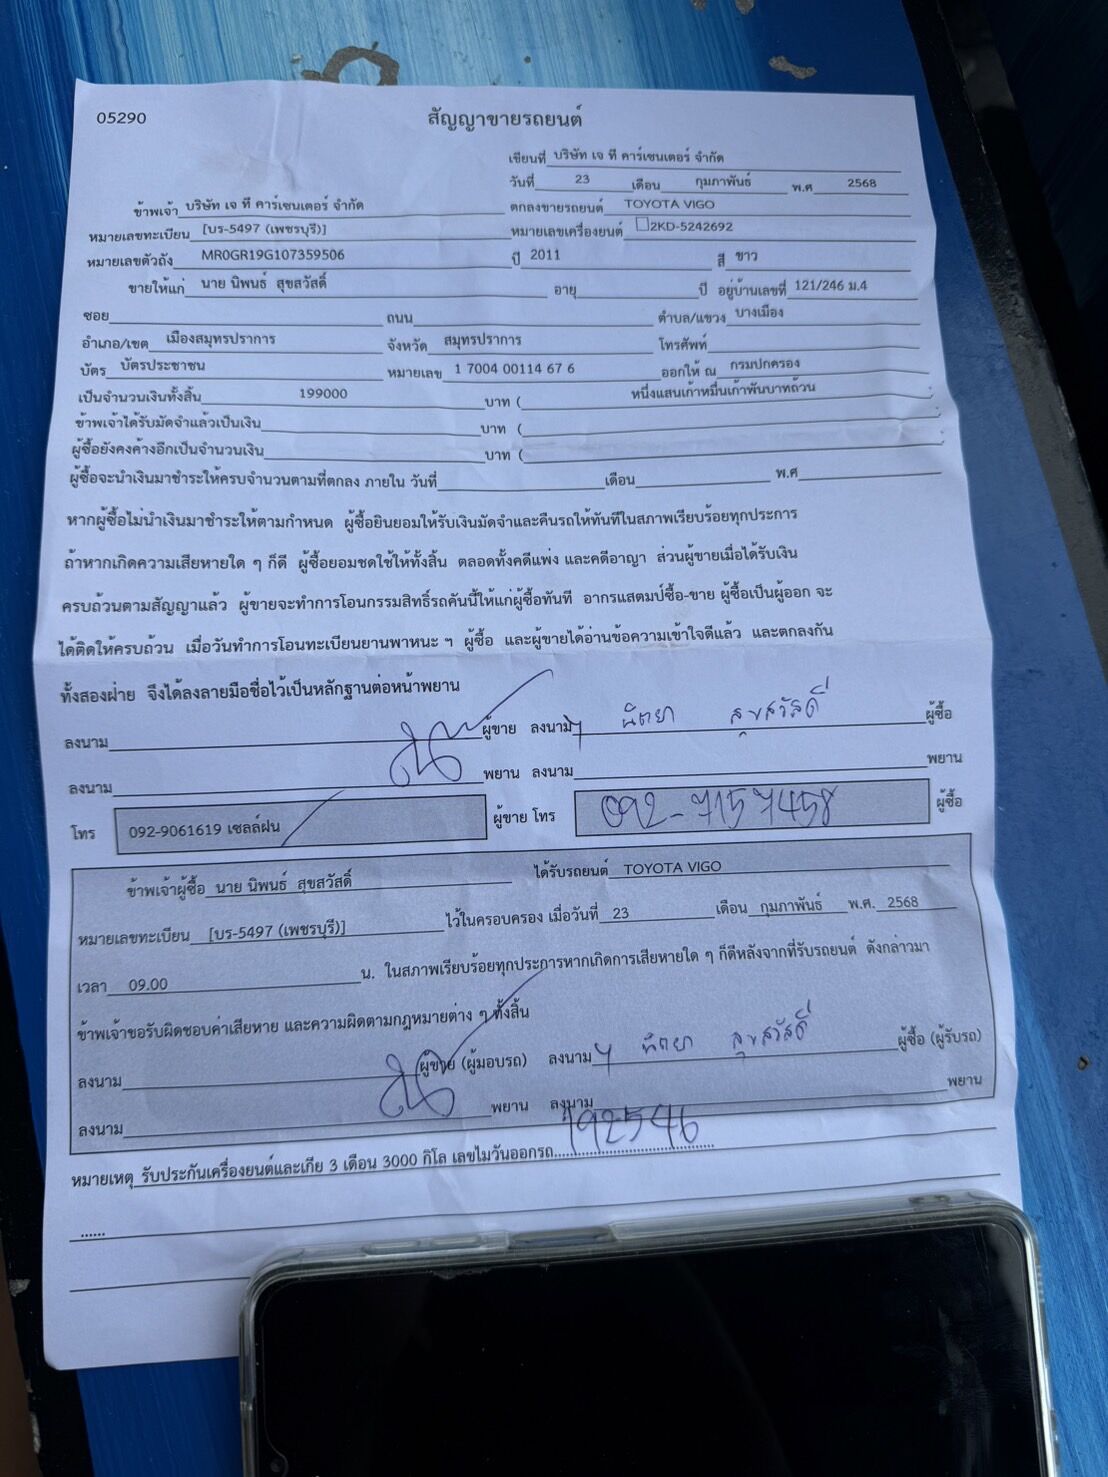 05290
สัญญาขายรถยนต์
เขียนที่ บริษัท เจ ที คาร์เซนเตอร์ จำกัด
วันที่ 23 เดือน กุมภาพันธ์ พ.ศ 2568
ข้าพเจ้า บริษัท เจ ที คาร์เซนเตอร์ จำกัด ตกลงขายรถยนต์ TOYOTA VIGO
หมายเลขทะเบียน [บร-5497 (เพชรบุรี)] หมายเลขเครื่องยนต์ 2KD-5242692
หมายเลขตัวถัง MR0GR19G107359506 ปี 2011 สี ขาว
ขายให้แก่ นาย นิพนธ์ สุขสวัสดิ์ อายุ ปี อยู่บ้านเลขที่ 121/246 ม.4
ซอย ถนน ตำบล/แขวง บางเมือง
อำเภอ/เขต เมืองสมุทรปราการ จังหวัด สมุทรปราการ โทรศัพท์
บัตร บัตรประชาชน หมายเลข 1 7004 00114 67 6 ออกให้ ณ กรมปกครอง
เป็นจำนวนเงินทั้งสิ้น 199000 บาท ( หนึ่งแสนเก้าหมื่นเก้าพันบาทถ้วน
ข้าพเจ้าได้รับมัดจำแล้วเป็นเงิน บาท (
ผู้ซื้อยังคงค้างอีกเป็นจำนวนเงิน บาท (
ผู้ซื้อจะนำเงินมาชำระให้ครบจำนวนตามที่ตกลง ภายใน วันที่ เดือน พ.ศ
หากผู้ซื้อไม่นำเงินมาชำระให้ตามกำหนด ผู้ซื้อยินยอมให้รับเงินมัดจำและคืนรถให้ทันทีในสภาพเรียบร้อยทุกประการ
ถ้าหากเกิดความเสียหายใด ๆ ก็ดี ผู้ซื้อยอมชดใช้ให้ทั้งสิ้น ตลอดทั้งคดีแพ่ง และคดีอาญา ส่วนผู้ขายเมื่อได้รับเงิน
ครบถ้วนตามสัญญาแล้ว ผู้ขายจะทำการโอนกรรมสิทธิ์รถคันนี้ให้แก่ผู้ซื้อทันที อากรแสตมป์ซื้อ-ขาย ผู้ซื้อเป็นผู้ออก จะ
ได้ติดให้ครบถ้วน เมื่อวันทำการโอนทะเบียนยานพาหนะ ฯ ผู้ซื้อ และผู้ขายได้อ่านข้อความเข้าใจดีแล้ว และตกลงกัน
ทั้งสองฝ่าย จึงได้ลงลายมือชื่อไว้เป็นหลักฐานต่อหน้าพยาน
ลงนาม ผู้ขาย ลงนาม นิตยา สุขสวัสดี ผู้ซื้อ
ลงนาม พยาน ลงนาม พยาน
โทร 092-9061619 เซลล์ฝน ผู้ขาย โทร 092-7157458 ผู้ซื้อ
ข้าพเจ้าผู้ซื้อ นาย นิพนธ์ สุขสวัสดิ์ ได้รับรถยนต์ TOYOTA VIGO
หมายเลขทะเบียน [บร-5497 (เพชรบุรี)] ไว้ในครอบครอง เมื่อวันที่ 23 เดือน กุมภาพันธ์ พ.ศ. 2568
เวลา 09.00 น. ในสภาพเรียบร้อยทุกประการหากเกิดการเสียหายใด ๆ ก็ดีหลังจากที่รับรถยนต์ ดังกล่าวมา
ข้าพเจ้าขอรับผิดชอบค่าเสียหาย และความผิดตามกฎหมายต่าง ๆ ทั้งสิ้น
ลงนาม ผู้ขาย (ผู้มอบรถ) ลงนาม นิตยา สุขสวัสดี ผู้ซื้อ (ผู้รับรถ)
ลงนาม พยาน ลงนาม พยาน
หมายเหตุ รับประกันเครื่องยนต์และเกีย 3 เดือน 3000 กิโล เลขไมวันออกรถ 192546
......